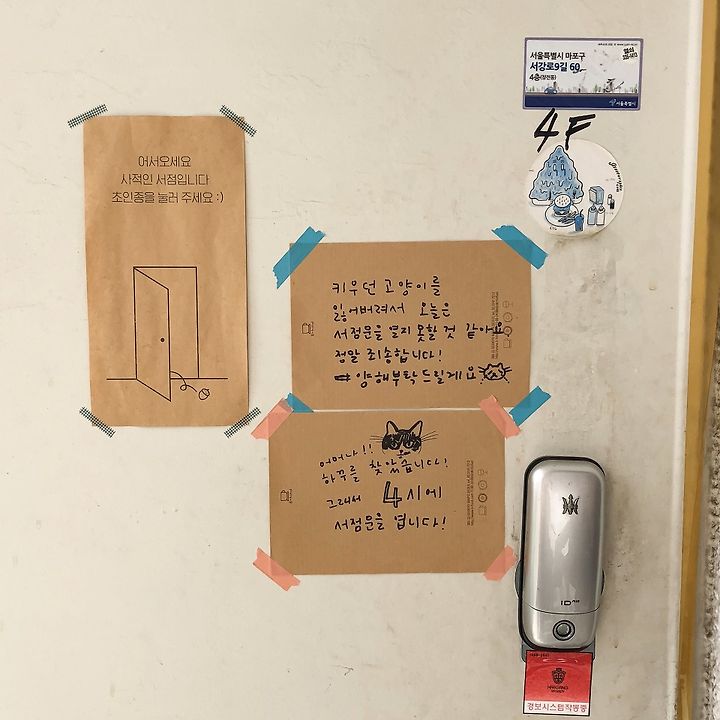 어서오세요
사적인 서점입니다
초인종을 눌러 주세요 :)
서울특별시 마포구
서강로9길 60
4층(창전동)
서울특별시
4F
키우던 고양이를
잃어버려서 오늘은
서점문을 열지 못할 것 같아요,
정말 죄송합니다!
양해부탁드릴게요
어머나!!
하꾸를 찾았습니다!
그래서 4시에
서점문을 엽니다!
ID
경보시스템작동중